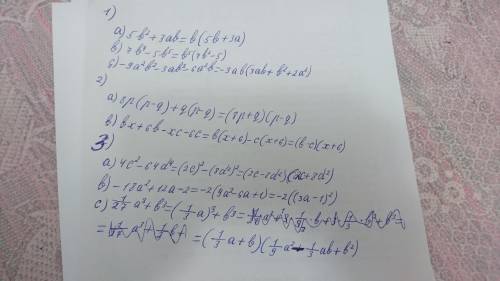 1)
a) 5b²+3ab=b(5b+3a)
b) 7b⁸-5b⁵=b⁵(7b³-5)
б)-9a²b²-3ab³-6a³b=-3ab(3ab+b²+2a²)
2)
a) 8p(p-q)+q(p-q)=(8p+q)(p-q)
b) bx+6b-xc-6c=b(x+6)-c(x+6)=(b-c)(x+6)
3)
a) 4c²-64d⁴=(2c)²-(8d²)²=(2c-8d²)(2c+8d²)
b) -18a²+12a-2=-2(9a²-6a+1)=-2((3a-1)²)
c) 1/27 a³+b³=(1/3 a)³+b³=
= =(1/3 a+b)(1/9 a²-1/3 ab+b²)